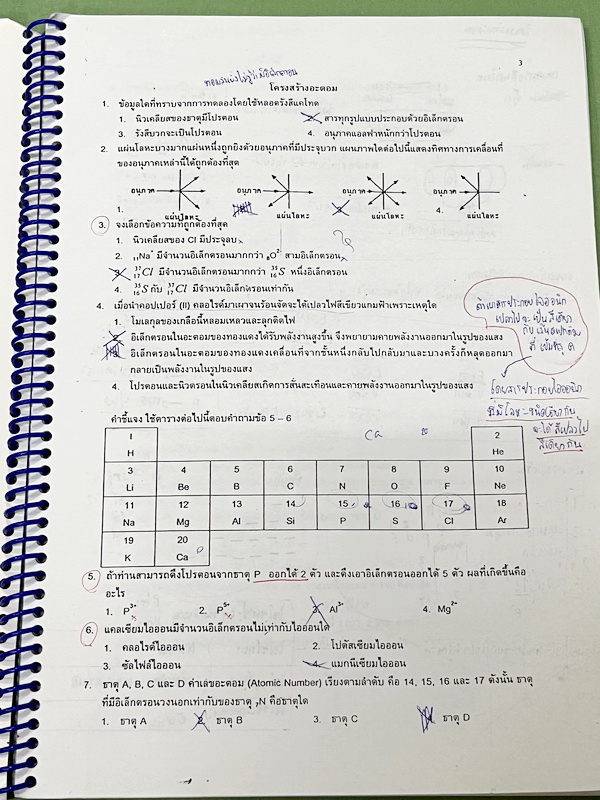 3
ทอมสันยังไม่รู้ว่ามีอิเล็กตรอน
โครงสร้างอะตอม
1. ข้อมูลใดที่ทราบจากการทดลองโดยใช้หลอดรังสีแคโทด
1. นิวเคลียสของธาตุมีโปรตอน 2. สารทุกรูปแบบประกอบด้วยอิเล็กตรอน
3. รังสีบวกจะเป็นโปรตอน 4. อนุภาคแอลฟาหนักกว่าโปรตอน
2. แผ่นโลหะบางมากแผ่นหนึ่งถูกยิงด้วยอนุภาคที่มีประจุบวก แผนภาพใดต่อไปนี้แสดงทิศทางการเคลื่อนที่
ของอนุภาคเหล่านี้ได้ถูกต้องที่สุด
อนุภาค อนุภาค อนุภาค อนุภาค
1. 3. 4.
แผ่นโลหะ แผ่นโลหะ แผ่นโลหะ แผ่นโลหะ
3. จงเลือกข้อความที่ถูกต้องที่สุด
1. นิวเคลียสของ Cl มีประจุลบ
2. ₁₁Na⁺ มีจำนวนอิเล็กตรอนมากกว่า ₈O²⁻ สามอิเล็กตรอน
3. ³⁷₁₇Cl มีจำนวนอิเล็กตรอนมากกว่า ³⁵₁₆S หนึ่งอิเล็กตรอน
4. ³⁵₁₆S กับ ³⁷₁₇Cl มีจำนวนอิเล็กตรอนเท่ากัน
4. เมื่อนำคอปเปอร์ (II) คลอไรด์มาเผาจนร้อนจัดจะได้เปลวไฟสีเขียวแกมฟ้าเพราะเหตุใด
1. โมเลกุลของเกลือนี้หลอมเหลวและลุกติดไฟ
2. อิเล็กตรอนในอะตอมของทองแดงได้รับพลังงานสูงขึ้น จึงพยายามคายพลังงานออกมาในรูปของแสง
อิเล็กตรอนในอะตอมของทองแดงเคลื่อนที่จากชั้นหนึ่งกลับไปกลับมาและบางครั้งก็หลุดออกมา
กลายเป็นพลังงานในรูปของแสง
4. โปรตอนและนิวตรอนในนิวเคลียสเกิดการสั่นสะเทือนและคายพลังงานออกมาในรูปของแสง
โดยสารประกอบไอออนิก
ที่มีโลหะชนิดเดียวกัน
จะได้สีเปลวไฟ
สีเดียวกัน
คำชี้แจง ใช้ตารางต่อไปนี้ตอบคำถามข้อ 5 – 6
Ca
I 2
H He
3 4 5 6 7 8 9 10
Li Be B C N O F Ne
11 12 13 14 15 16 17 18
Na Mg Al Si P S Cl Ar
19 20
K Ca
5. ถ้าท่านสามารถดึงโปรตอนจากธาตุ P ออกได้ 2 ตัว และดึงเอาอิเล็กตรอนออกได้ 5 ตัว ผลที่เกิดขึ้นคือ
อะไร
1. P³⁺ 2. P⁵⁺ 3. Al³⁺ 4. Mg²⁺
6. แคลเซียมไอออนมีจำนวนอิเล็กตรอนไม่เท่ากับไอออนใด
1. คลอไรด์ไอออน 2. โปตัสเซียมไอออน
3. ซัลไฟล์ไอออน 4. แมกนีเซียมไอออน
7. ธาตุ A, B, C และ D ค่าเลขอะตอม (Atomic Number) เรียงตามลำดับ คือ 14, 15, 16 และ 17 ดังนั้น ธาตุ
ที่มีอิเล็กตรอนวงนอกเท่ากับของธาตุ ₇N คือธาตุใด
1. ธาตุ A 2. ธาตุ B 3. ธาตุ C ธาตุ D